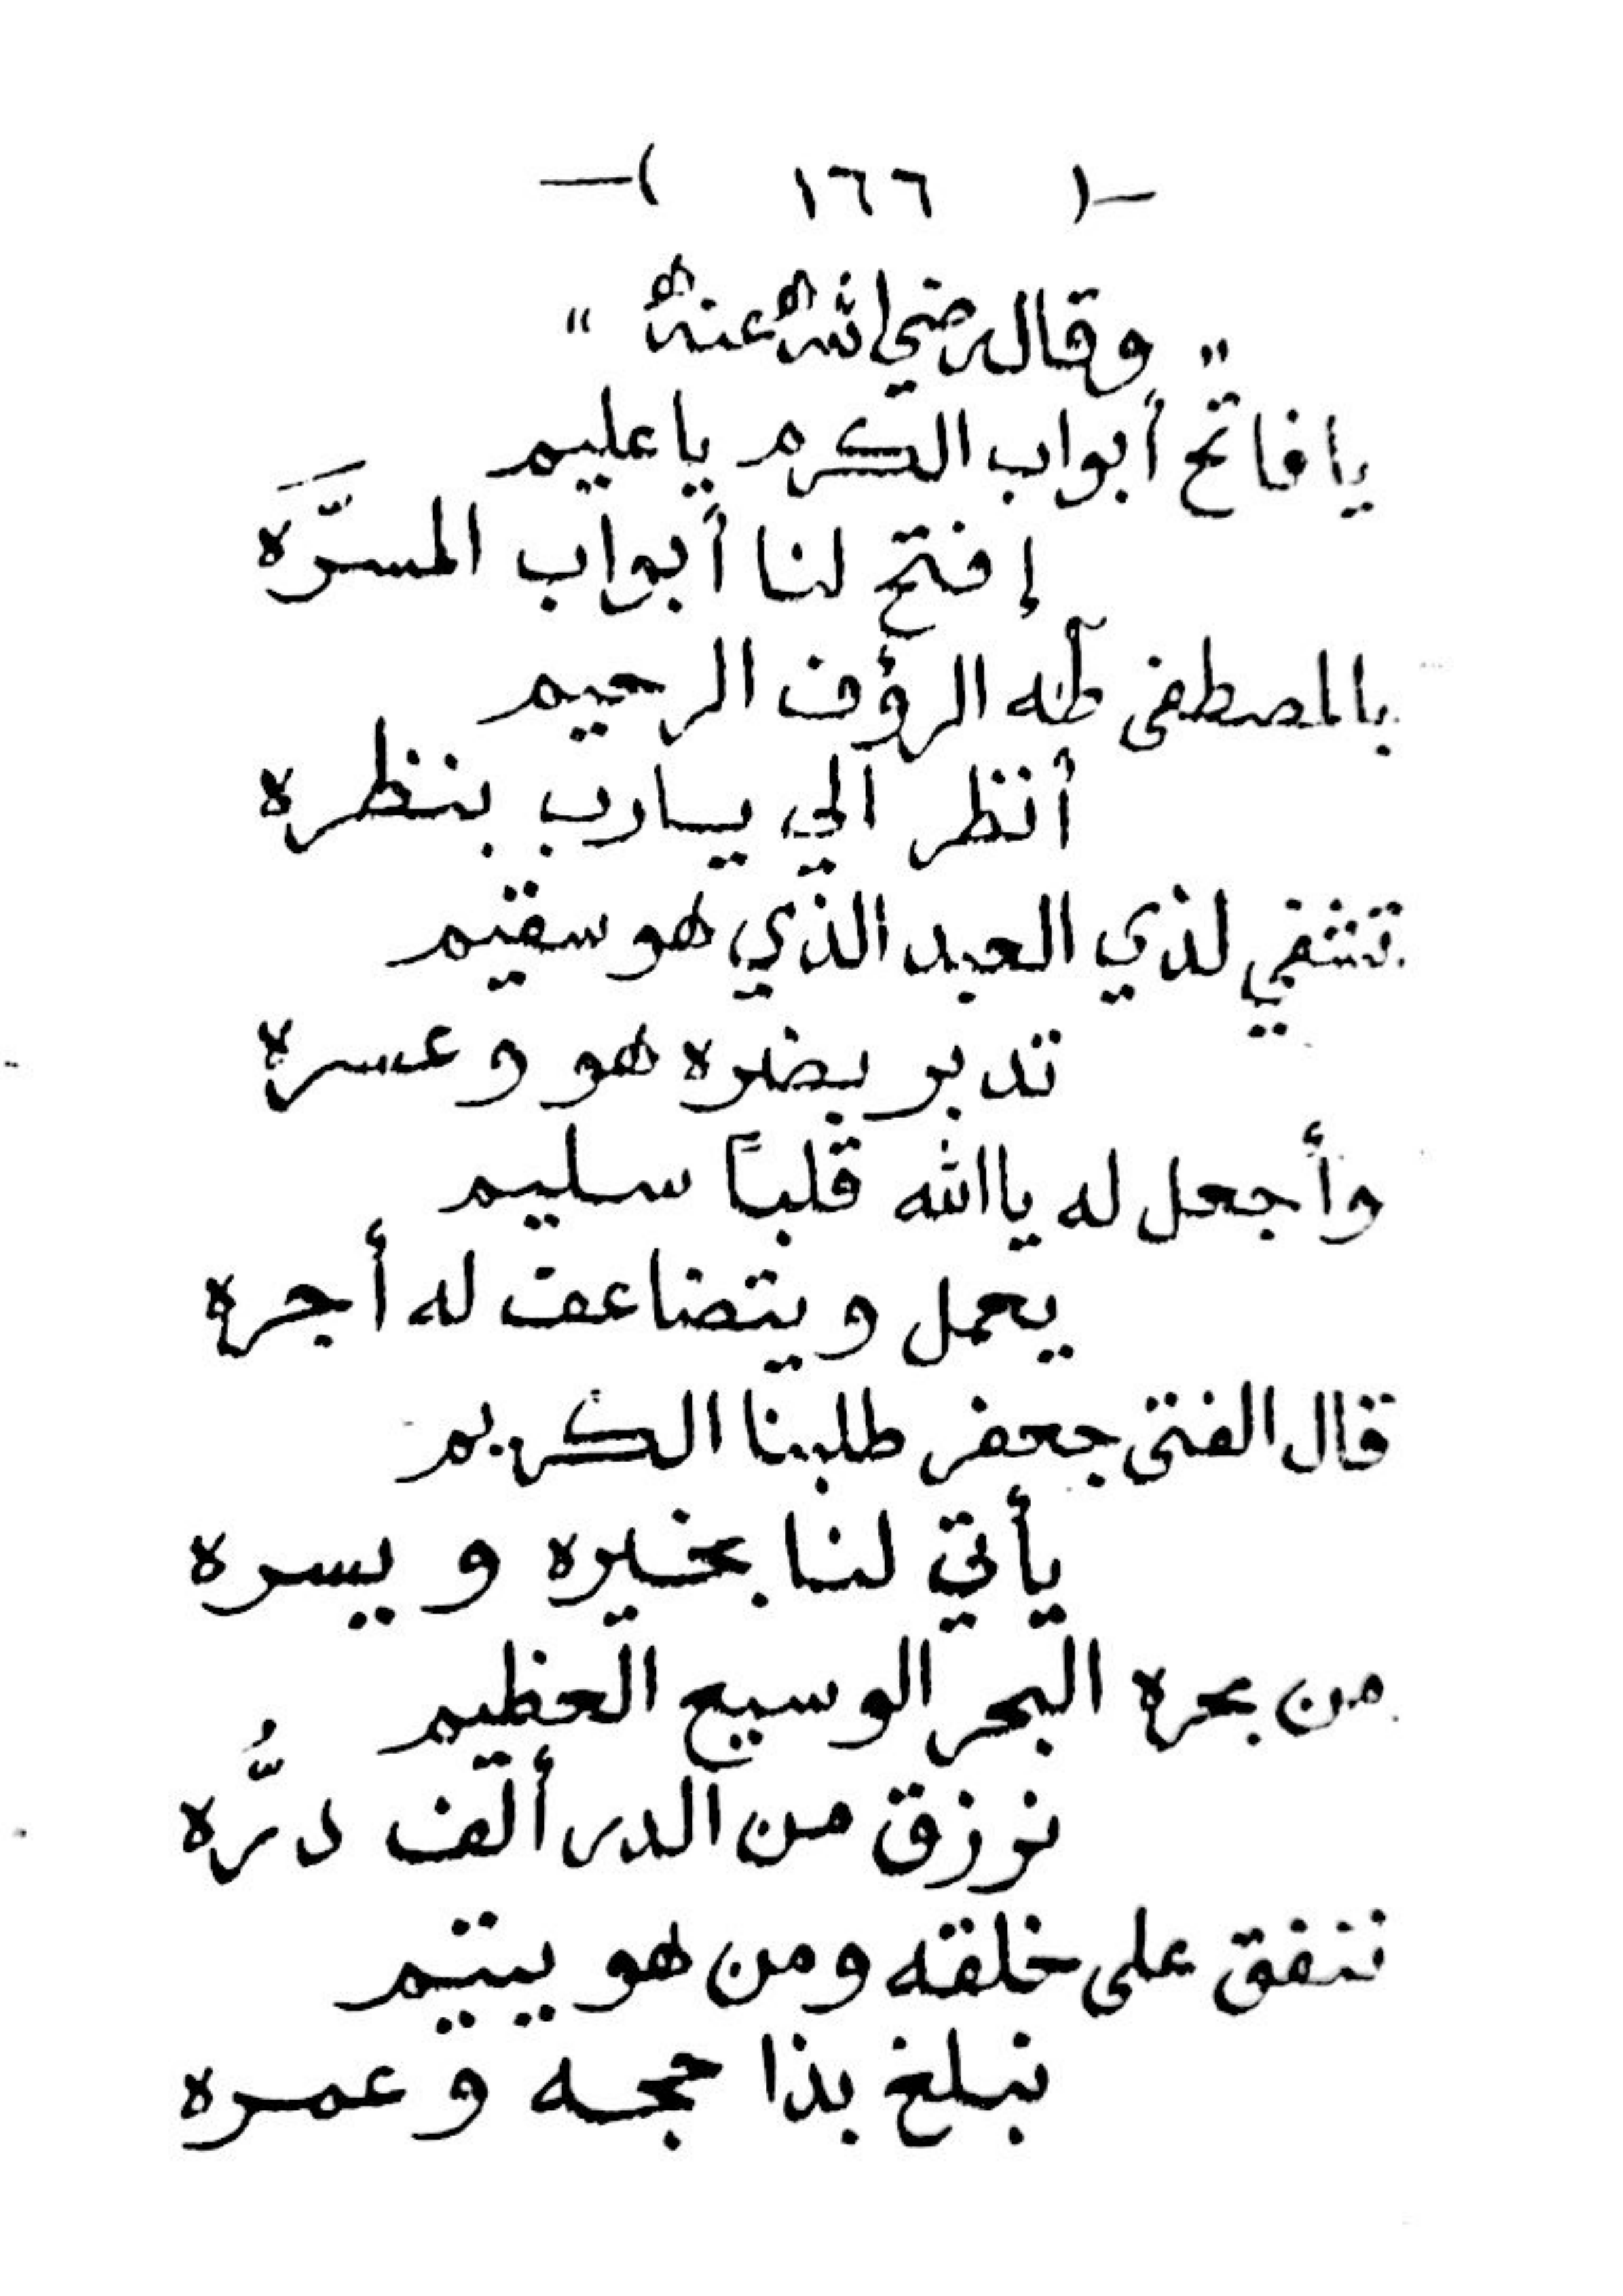 -( ١٦٦ )-
" وقال رضي الله عنه "
يا فاتح أبواب الكرم يا عليم
إفتح لنا أبواب المسرَّه
بالمصطفى طٰه الرؤف الرحيم
أنظر الي يارب بنظره
تشفي لذي العبد الذي هو سقيم
تدبر بضره هو وعسره
وأجعل له ياالله قلباً سليم
يحمل ويتضاعف له أجره
قال الفتى جعفر طلبنا الكريم
يأتي لنا بخيره و يسره
من بحره البحر الوسيع العظيم
نرزق من الدر ألف درَّه
ننفق على خلقه ومن هو يتيم
نبلغ بذا حجه وعمره